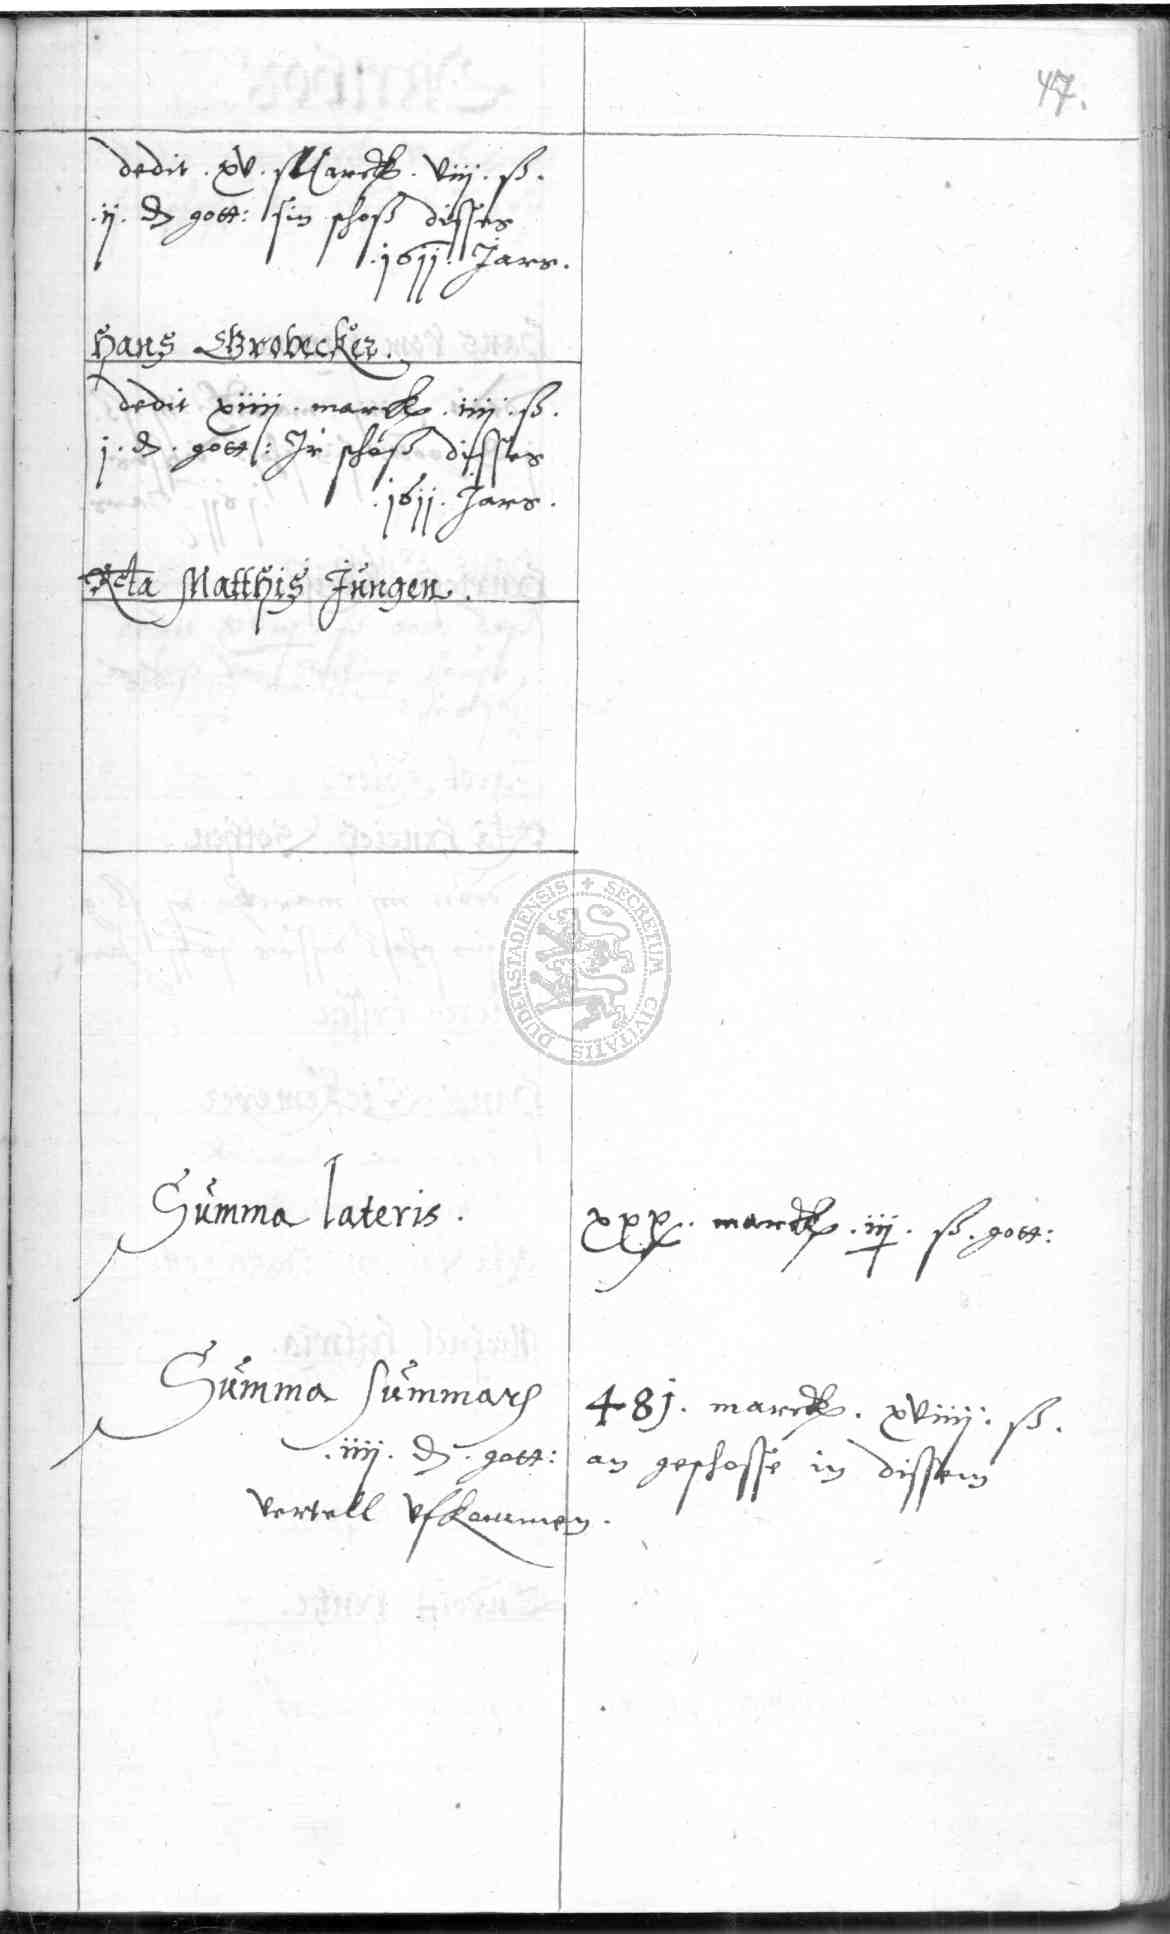 47.
dedit . xv . Marck . viij . ß .
.ij. ₰ gott: sin schoß disses
.1611. Jars.
Hans Grobecker.
dedit xiiij . marck . iiij . ß .
j . ₰ . gott: Ir schoß disses
.1611. Jars.
Rcta Matthis Jungen.
DUDERSTADIENSIS + SECRETUM CIVITATIS
Summa lateris . xxx . marck . iij . ß . gott:
Summa summarū 481 . marck . xviiij . ß .
.iiij. ₰ . gott: an geschosse in dissem
vertell ufkommen .